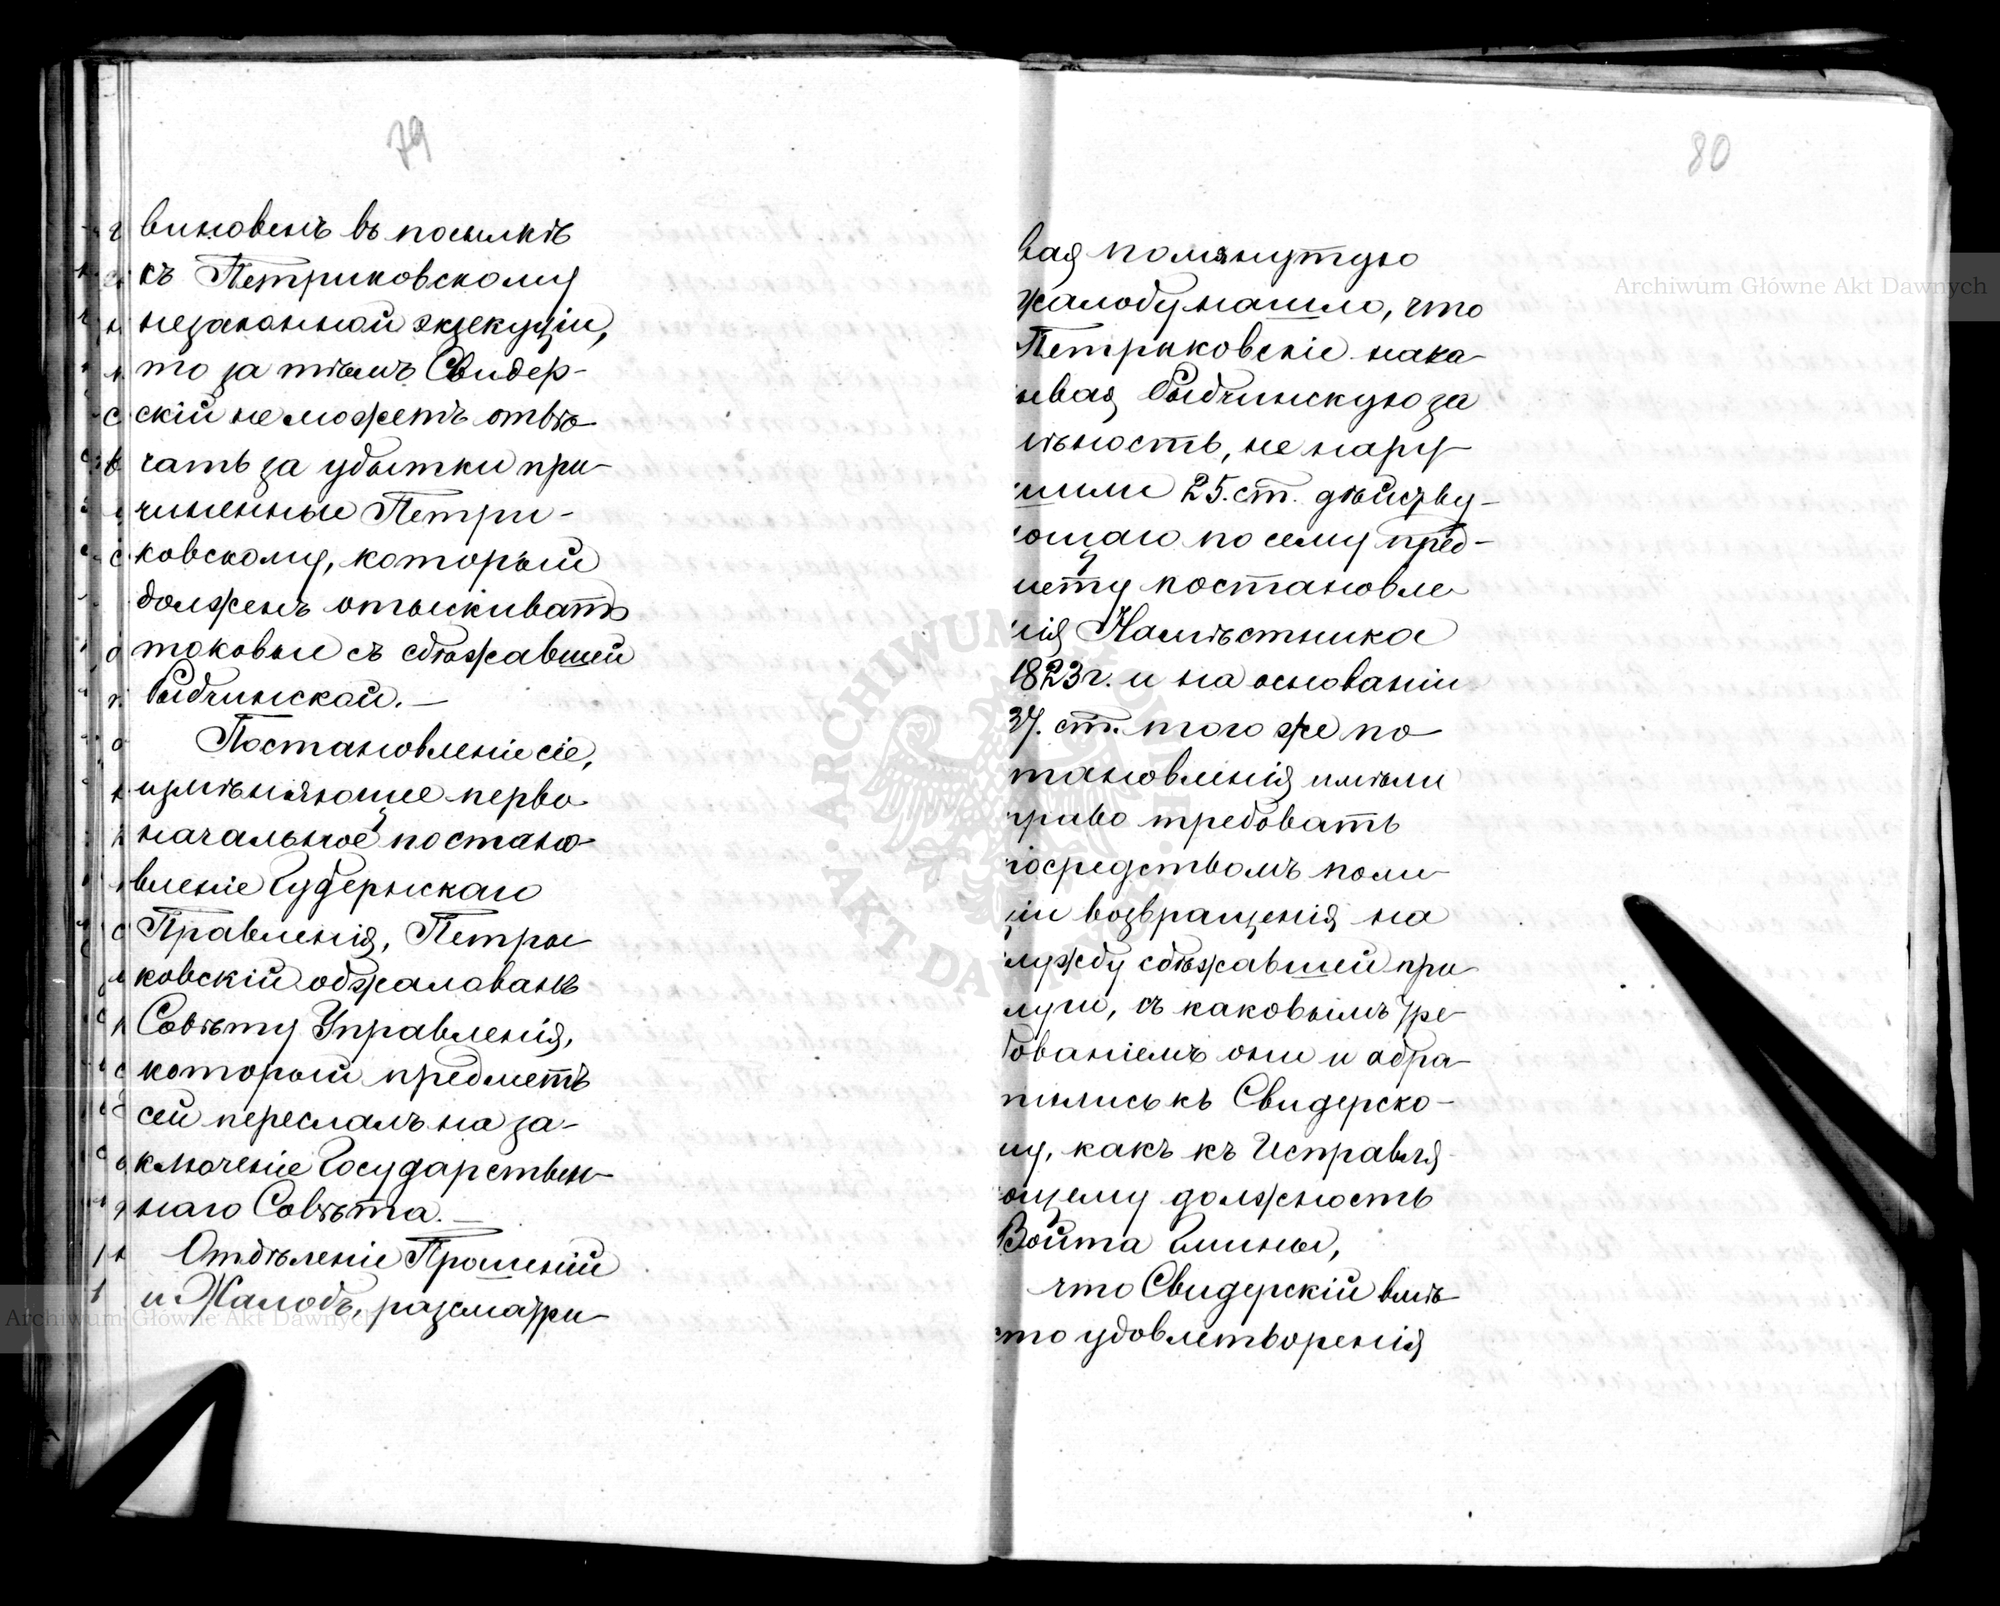 79
виновенъ въ посылкѣ
къ Петриковскому
незаконной экзекуціи,
то за тѣмъ Свидер-
скій не можетъ отвѣ-
чать за убытки при-
чиненные Петри-
ковскому, который
долженъ отыскивать
таковые съ сбѣжавшей
Рыдчинской. —
Постановленіе сіе,
измѣняющее перво-
начальное постано-
вленіе Губернскаго
Правленія, Петры-
ковскій обжаловалъ
Совѣту Управленія,
который предметъ
сей переслалъ на за-
ключеніе Государствен-
наго Совѣта. —
Отдѣленіе Прошеній
и Жалобъ, разсматри-
80
вая помянутую
жалобу нашло, что
Петрыковскіе нака-
ывая Рыдчинскую за
ѣность, не нару-
шили 25. ст. дѣйству-
ющаго по сему пред-
мету постановле-
нія Намѣстника
1823 г. и на основаніи
37. ст. того же по-
тановленія имѣли
право требовать
посредствомъ поли-
ціи возвращенія на
лужбу сбѣжавшей при-
луги, съ каковымъ тре-
бованіемъ они и обра-
тились къ Свидерско-
му, какъ къ Исправля-
ющему должность
Войта Гмины,
что Свидерскій вмѣ-
сто удовлетворенія
Archiwum Główne Akt Dawnych
Archiwum Główne Akt Dawnych